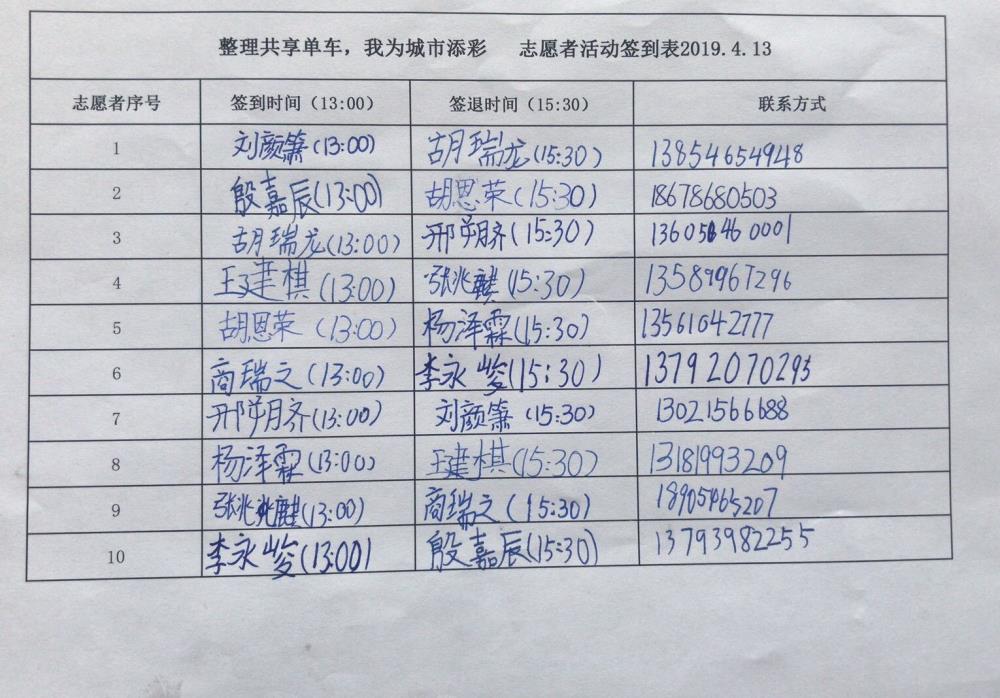 整理共享单车，我为城市添彩 志愿者活动签到表2019.4.13
志愿者序号 签到时间（13:00） 签退时间（15:30） 联系方式
1 刘颜箫(13:00) 胡瑞龙(15:30) 13854654948
2 殷嘉辰(13:00) 胡恩荣(15:30) 18678680503
3 胡瑞龙(13:00) 邢朔齐(15:30) 13605460001
4 王建棋(13:00) 张兆麒(15:30) 13589967296
5 胡恩荣(13:00) 杨泽霖(15:30) 13561642777
6 商瑞之(13:00) 李永峻(15:30) 13792070293
7 邢朔齐(13:00) 刘颜箫(15:30) 13021566688
8 杨泽霖(13:00) 王建棋(15:30) 13181993209
9 张兆麒(13:00) 商瑞之(15:30) 18905465207
10 李永峻(13:00) 殷嘉辰(15:30) 13793982255